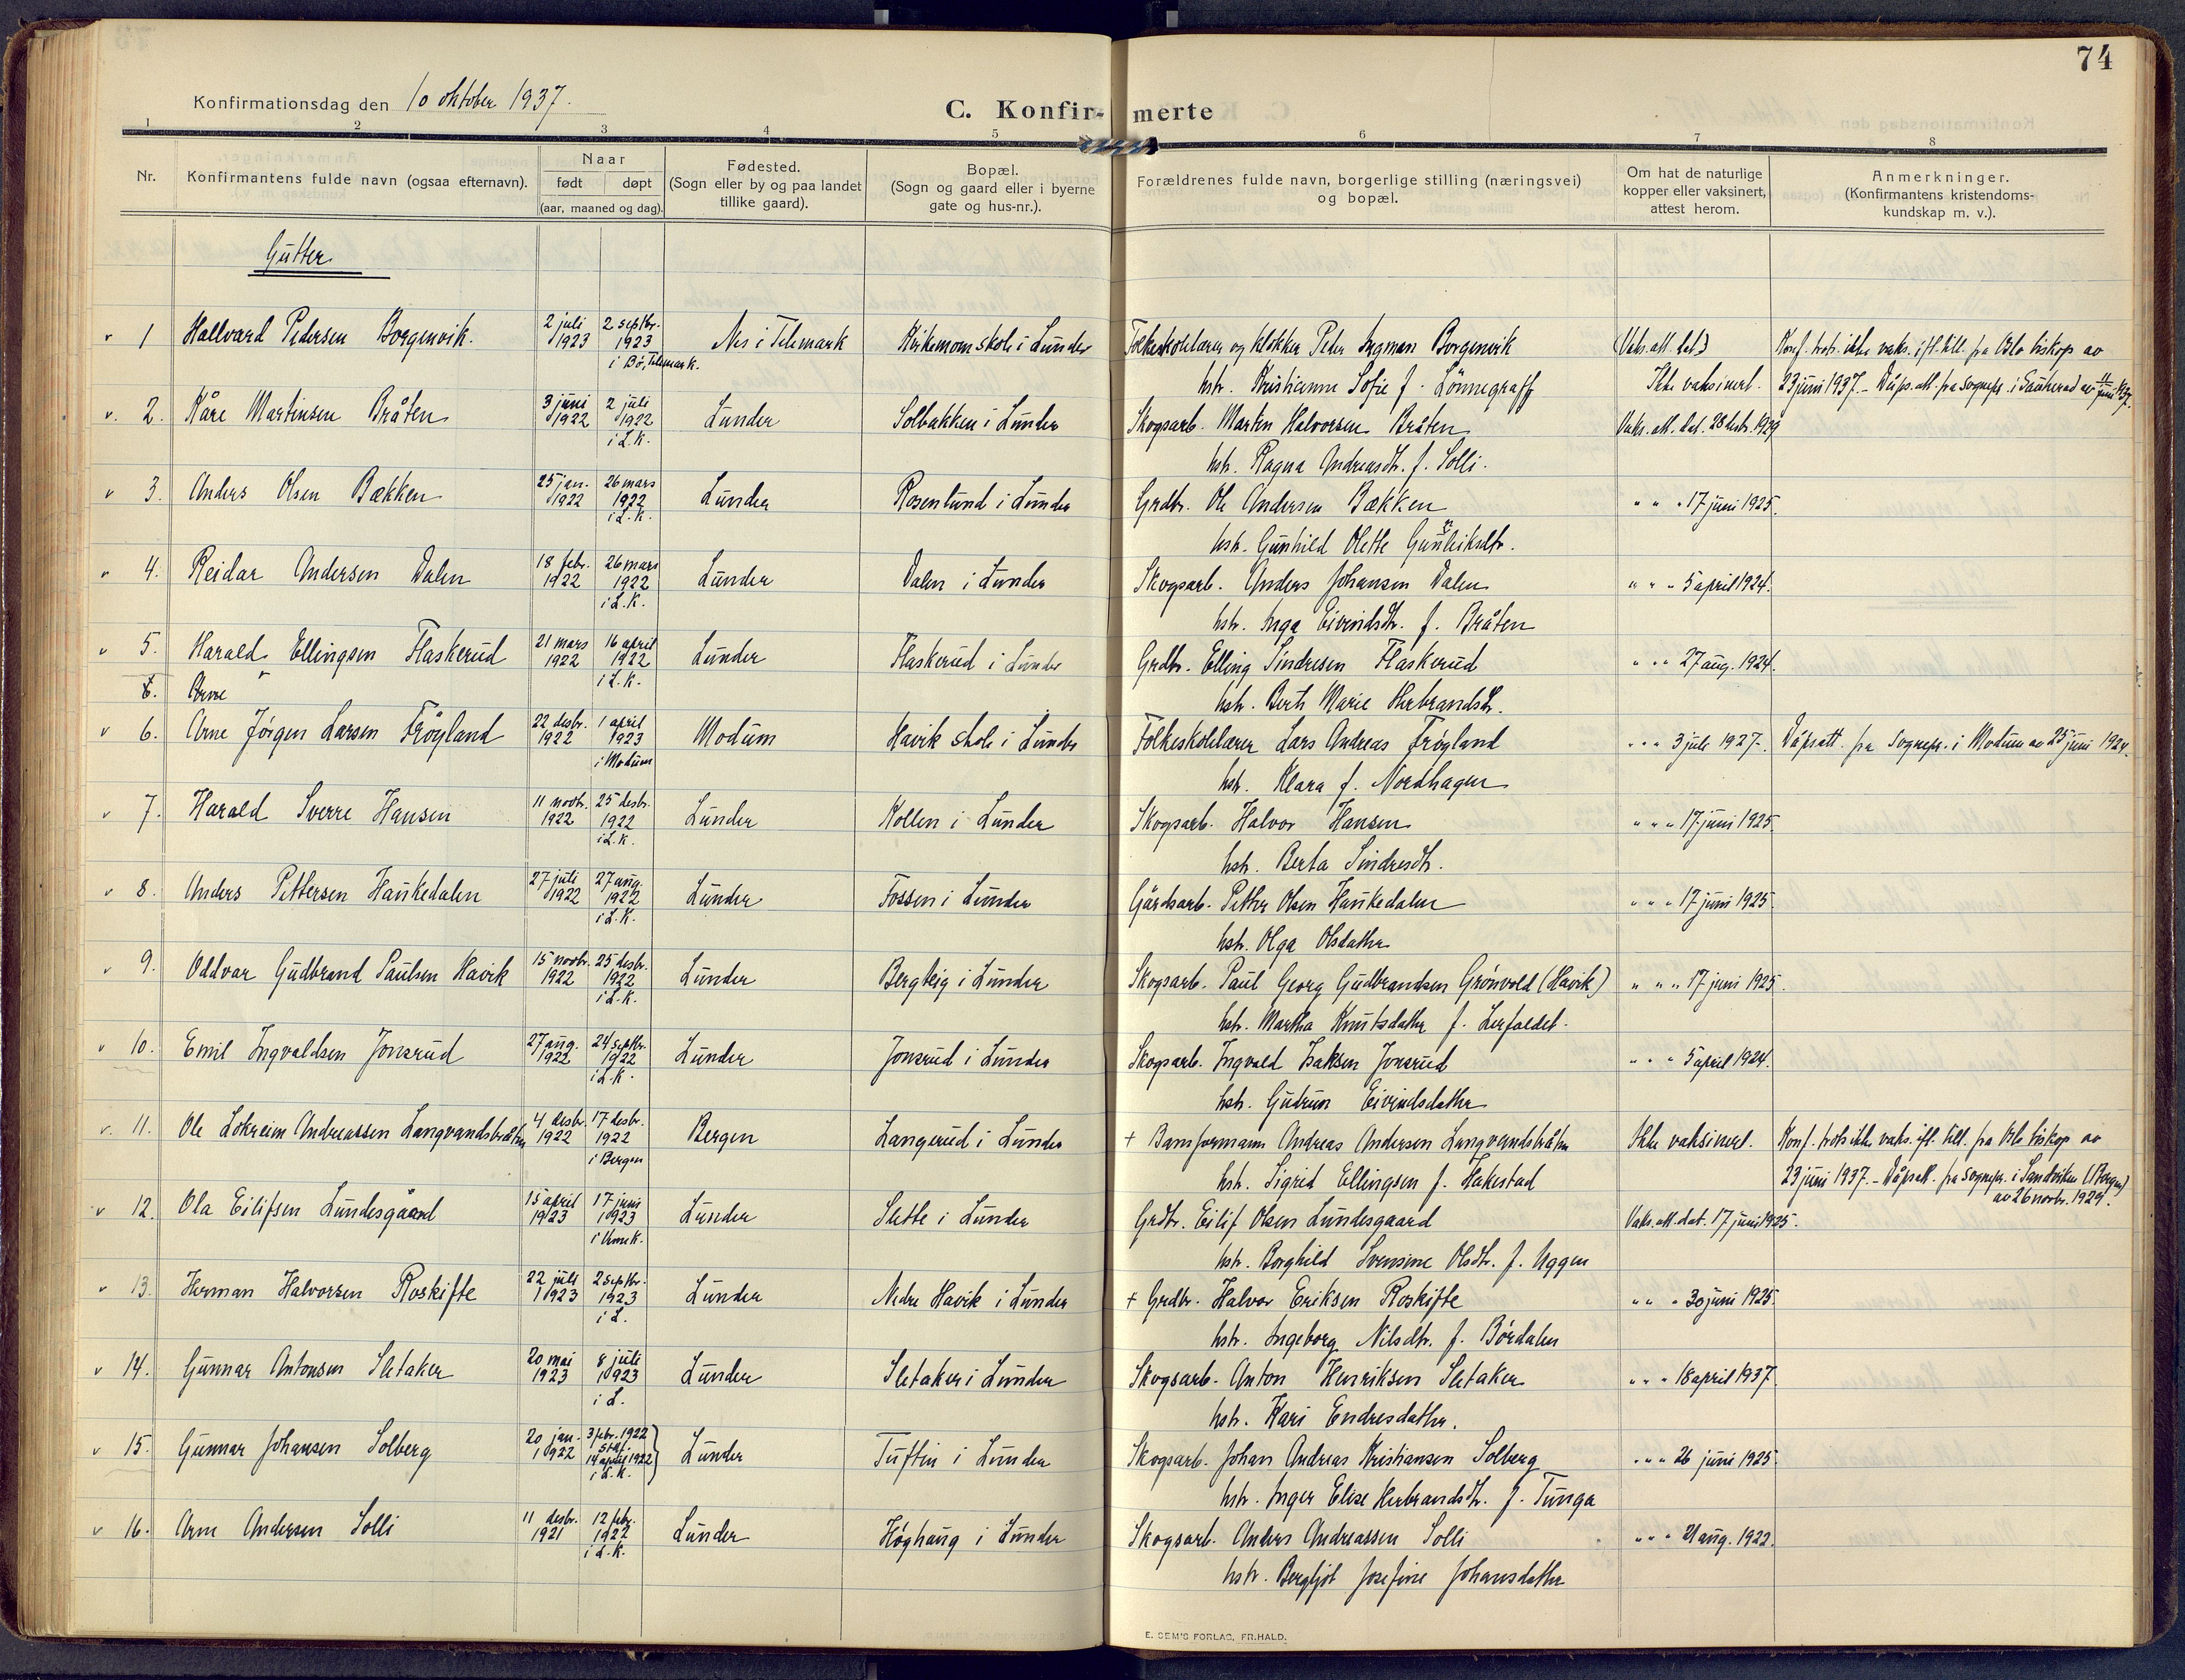 74
Konfirmationsdag den 10 oktober 1937.
C. Konfir- merte
1 2 3 4 5 6 7 8
Nr.
Konfirmantens fulde navn (ogsaa efternavn).
Naar
født døpt
(aar, maaned og dag).
Fødested.
(Sogn eller by og paa landet
tillike gaard).
Bopæl.
(Sogn og gaard eller i byerne
gate og hus-nr.).
Forældrenes fulde navn, borgerlige stilling (næringsvei)
og bopæl.
Om hat de naturlige
kopper eller vaksinert,
attest herom.
Anmerkninger.
(Konfirmantens kristendoms-
kundskap m. v.).
Gutter
v 1 Hallvard Pedersen Borgenvik. 2 juli 1923 2 septbr. 1923 i Bø, Telemark. Nes i Telemark Kirkemom skole i Lunder Folkeskolelærer og klokker Peder Ingman Borgenvik Vaks. att. dat. Konf. trots ikke vaks. ifl. till. fra Oslo biskop av
hstr. Kristianna Sofie f. Lønnegraff Ikke vaksinert. 23 juni 1937. - Dåps. att. fra sognepr. i Sauherad av 11 juni 1937.
v. 2. Kåre Martinsen Bråten 3 juni 1922 2 juli 1922 i L.K. Lunder Solbakken i Lunder Skogsarb. Martin Halvorsen Bråten Vaks. att. dat. 28 desbr. 1929
hstr. Ragna Andreasdtr. f. Solli.
v 3. Anders Olsen Bækken 25 jan. 1922 26 mars 1922 i L.K. Lunder Rosenlund i Lunder Grdbr. Ole Andersen Bækken " " " 17 juni 1925.
hstr. Gunhild Olette Gunleiksdtr.
v 4. Reidar Andersen Dalen 18 febr. 1922 26 mars 1922 i L.K. Lunder Dalen i Lunder Skogsarb. Anders Johansen Dalen " " " 5 april 1924.
hstr. Inga Eivindsdtr. f. Bråten
v 5. Harald Ellingsen Flaskerud 21 mars 1922 16 april 1922 i L.K. Lunder Flaskerud i Lunder Grdbr. Elling Sindresen Flaskerud " " " 27 aug. 1924.
6. Arne hstr. Berte Marie Herbrandsdtr.
v 6. Arne Jörgen Larsen Fröyland 22 desbr. 1922 1 april 1923 i Modum Modum Havik skole i Lunder Folkeskolelærer Lars Andreas Frøyland " " " 3 juli 1927. Dåpsatt. fra Sognepr. i Modum av 25 juni 1924.
hstr. Klara f. Nordhagen
v 7. Harald Sverre Hansen 11 novbr. 1922 25 desbr. 1922 i L.K. Lunder Kollen i Lunder Skogsarb. Halvor Hansen " " " 17 juni 1925.
hstr. Berta Sindresdtr.
v 8. Anders Pettersen Haukedalen 27 juli 1922 27 aug. 1922 i L.K. Lunder Fossen i Lunder Gårdsarb. Petter Olsen Haukedalen " " " 17 juni 1925.
hstr. Olga Olsdatter
v 9. Oddvar Gudbrand Paulsen Havik 15 novbr. 1922 25 desbr. 1922 i L.K. Lunder Bergteig i Lunder Skogsarb. Paul Georg Gudbrandsen Grønvold (Havik) " " " 17 juni 1925.
hstr. Martha Knutsdatter f. Lerfaldet.
v 10. Emil Ingvaldsen Jonsrud 27 aug. 1922 24 septbr. 1922 i L.K. Lunder Jonsrud i Lunder Skogsarb. Ingvald Isaksen Jonsrud " " " 5 april 1924.
hstr. Gudrun Eivindsdatter
v. 11. Ole Lokreim Andreassen Langvandsbråten 4 desbr. 1922 17 desbr. 1922 i Bergen Bergen Langerud i Lunder + Banformann Andreas Andersen Langvandsbråten Ikke vaksinert. Konf. trots ikke vaks. ifl. till. fra Oslo biskop av
hstr. Sigrid Ellingsen f. Hakestad 23 juni 1937. - Dåpsatt. fra Sognepr. i Sandviken (Bergen)
av 26 novbr. 1924.
v 12. Ola Eilifsen Lundesgaard 15 april 1923 17 juni 1923 Lunder Slette i Lunder Grdbr. Eilif Olsen Lundesgaard Vaks. att. dat. 17 juni 1925.
hstr. Borghild Svensine Olsdtr. f. Uggen
v 13. Herman Halvorsen Roskifte 22 juli 1923 2 septbr. 1923 i L. Lunder Nedre Havik i Lunder + Grdbr. Halvor Eriksen Roskifte " " " 30 juni 1925.
hstr. Ingeborg Nilsdtr. f. Bördalen
v 14. Gunnar Antonsen Sletaker 20 mai 1923 8 juli 1923 i L. Lunder Sletaker i Lunder Skogsarb. Anton Henriksen Sletaker " " " 18 april 1937.
hstr. Kari Endresdatter.
v 15. Gunnar Johansen Solberg 20 jan. 1922 3 febr. 1922 stad. 14 april 1922 i L.K. Lunder Tuftin i Lunder Skogsarb. Johan Andreas Kristiansen Solberg " " " 26 juni 1925.
hstr. Inger Elise Herbrandsdtr. f. Tunga
v 16. Arne Andersen Solli 11 desbr. 1921 12 febr. 1922 i L.K. Lunder Höghaug i Lunder Skogsarb. Anders Andreassen Solli " " " 21 aug. 1922.
hstr. Bergljot Josefine Johansdatter
E. SEM'S FORLAG, FR.HALD.